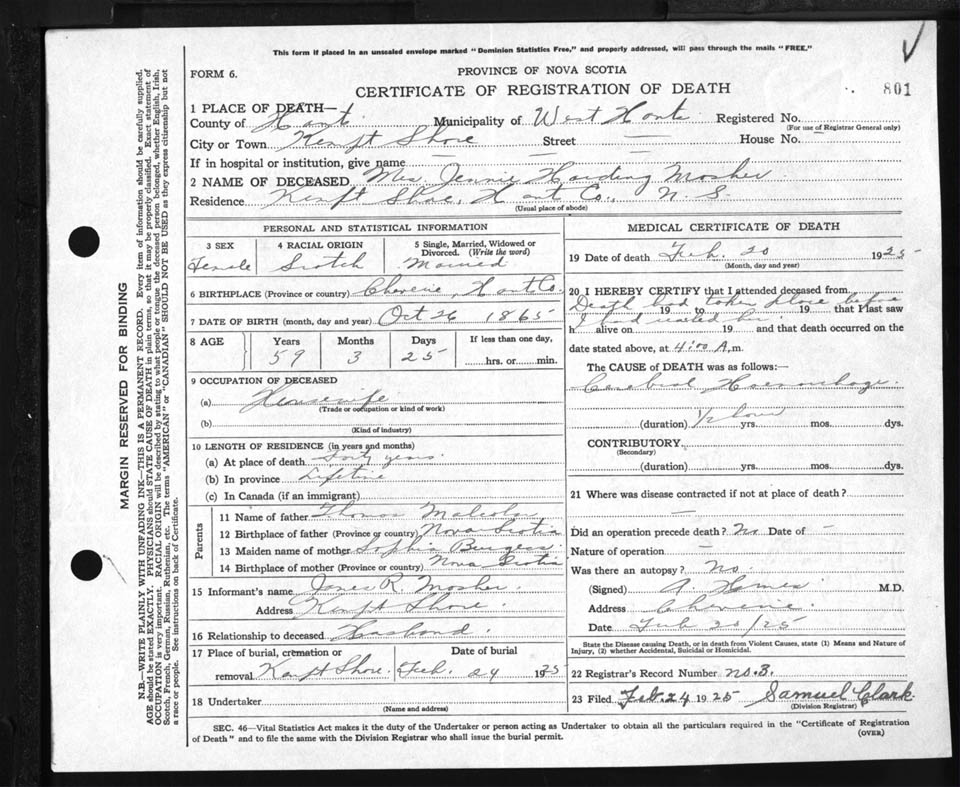 This form if placed in an unsealed envelope marked "Dominion Statistics Free," and properly addressed, will pass through the mails "FREE."
FORM 6.
PROVINCE OF NOVA SCOTIA
CERTIFICATE OF REGISTRATION OF DEATH
801
1 PLACE OF DEATH—
County of Hants Municipality of West Hants Registered No.
(For use of Registrar General only)
City or Town Kempt Shore Street — House No. —
If in hospital or institution, give name —
2 NAME OF DECEASED Mrs. Jennie Harding Mosher
Residence Kempt Shore, Hants Co., N. S.
(Usual place of abode)
PERSONAL AND STATISTICAL INFORMATION
3 SEX 4 RACIAL ORIGIN 5 Single, Married, Widowed or Divorced. (Write the word)
Female Scotch Married
6 BIRTHPLACE (Province or country) Cheverie, Hants Co.
7 DATE OF BIRTH (month, day and year) Oct 26 1865
8 AGE Years Months Days If less than one day,
59 3 25 hrs. or min.
9 OCCUPATION OF DECEASED
(a) Housewife
(Trade or occupation or kind of work)
(b)
(Kind of industry)
10 LENGTH OF RESIDENCE (in years and months)
(a) At place of death forty years
(b) In province Lifetime
(c) In Canada (if an immigrant)
Parents
11 Name of father Thomas Malcolm
12 Birthplace of father (Province or country) Nova Scotia
13 Maiden name of mother Sophia Burgess
14 Birthplace of mother (Province or country) Nova Scotia
15 Informant's name R. Mosher
Address Kempt Shore
16 Relationship to deceased Husband.
17 Place of burial, cremation or removal Date of burial
Kempt Shore Feb. 24 1925
18 Undertaker
(Name and address)
MEDICAL CERTIFICATE OF DEATH
19 Date of death Feb. 20 1925
(Month, day and year)
20 I HEREBY CERTIFY that I attended deceased from
Death had taken place before
19 to 19 that I last saw
I had reached her.
h alive on 19 and that death occurred on the
date stated above, at 4:00 A.m.
The CAUSE of DEATH was as follows:—
Cerebral Haemorrhage.
(duration) 1/2 hour yrs. mos. dys.
CONTRIBUTORY.
(Secondary)
(duration) yrs. mos. dys.
21 Where was disease contracted if not at place of death?
—
Did an operation precede death? No Date of —
Nature of operation —
Was there an autopsy? No.
(Signed) A. M.D.
Address Cheverie.
Date Feb 20/25
State the Disease causing Death, or in death from Violent Causes, state (1) Means and Nature of Injury, (2) whether Accidental, Suicidal or Homicidal.
22 Registrar's Record Number no. 3.
23 Filed Feb. 24 1925 Samuel Clark
(Division Registrar)
SEC. 46—Vital Statistics Act makes it the duty of the Undertaker or person acting as Undertaker to obtain all the particulars required in the "Certificate of Registration
of Death" and to file the same with the Division Registrar who shall issue the burial permit.
(OVER)
MARGIN RESERVED FOR BINDING
N.B.—WRITE PLAINLY WITH UNFADING INK—THIS IS A PERMANENT RECORD. Every item of information should be carefully supplied.
AGE should be stated EXACTLY. PHYSICIANS should STATE CAUSE OF DEATH in plain terms, so that it may be properly classified. Exact statement of
OCCUPATION is very important. RACIAL ORIGIN will be described by stating to what people or tongue the deceased person belonged, whether English, Irish,
Scotch, French, German, Russian, Ruthenian, etc. The terms "AMERICAN" or "CANADIAN" SHOULD NOT BE USED as they express citizenship but not
a race or people. See instructions on back of Certificate.